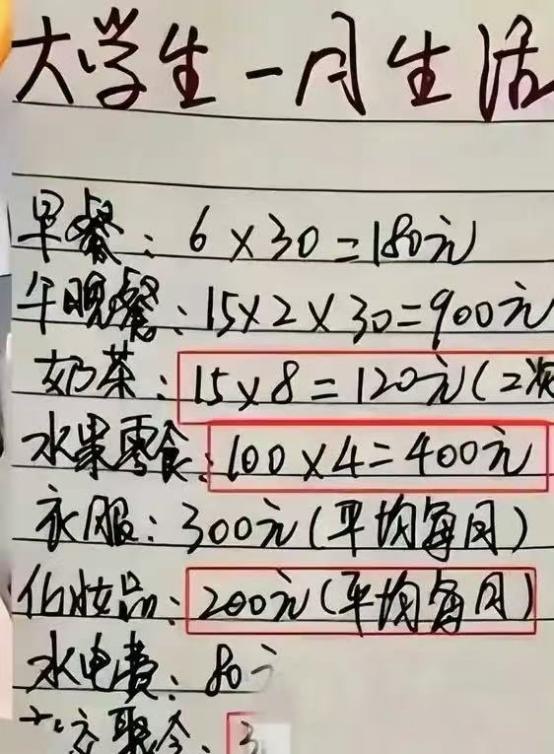 大学生一月生活
早餐：6×30=180元
午晚餐：15×2×30=900元
奶茶：15×8=120元(2次
水果零食：100×4=400元
衣服：300元(平均每月)
化妆品：200元(平均每月)
水电费：80
聚会：3